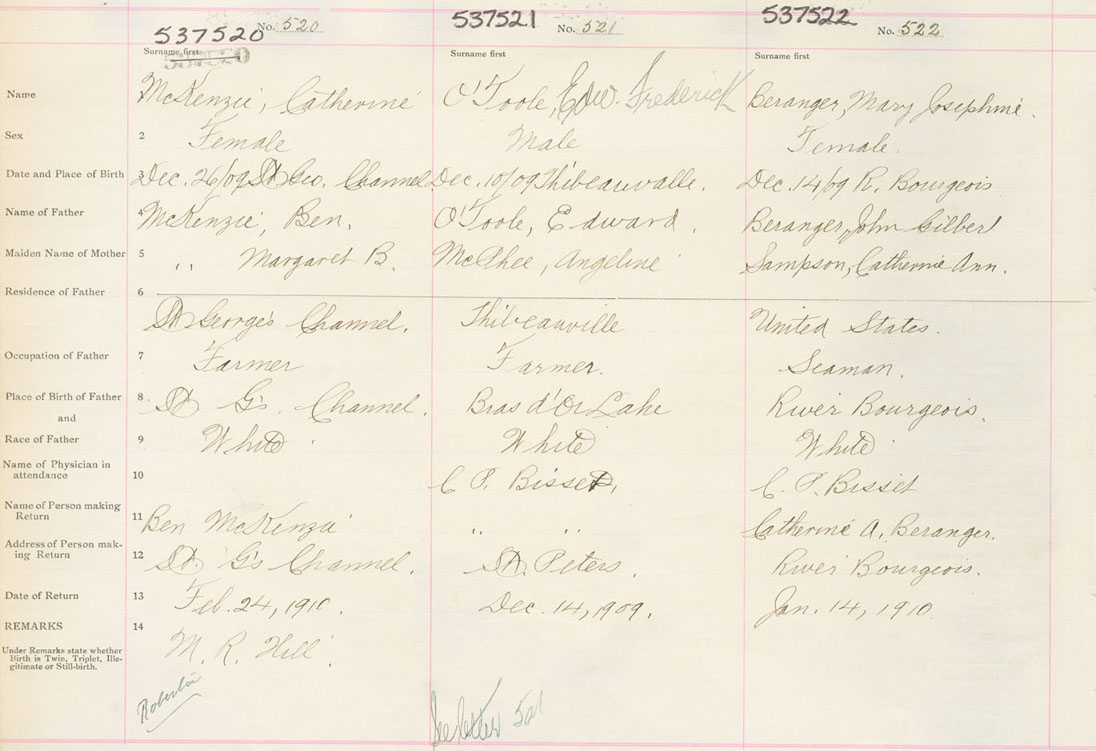 537520 No. 520 537521 No. 521 537522 No. 522
Surname first Surname first Surname first
Name McKenzie, Catherine O'Toole, Edw. Frederick Beranger, Mary Josephine.
Sex 2 Female Male Female.
Date and Place of Birth 3 Dec. 26/09 St Geo. Channel Dec. 10/09 Thibeauvalle. Dec. 14/09 R. Bourgeois
Name of Father 4 McKenzie, Ben. O'Toole, Edward. Beranger, John Gilbert
Maiden Name of Mother 5 " Margaret B. McPhee, Angeline Sampson, Catherine Ann.
Residence of Father 6
St George's Channel. Thibeauville United States.
Occupation of Father 7 Farmer Farmer. Seaman.
Place of Birth of Father 8 St G's. Channel. Bras d'Or Lake River Bourgeois.
and
Race of Father 9 White White White
Name of Physician in
attendance 10 C P. Bisset, C. P. Bisset
Name of Person making
Return 11 Ben McKenzie " " Catherine A. Beranger.
Address of Person mak-
ing Return 12 St G's Channel. St. Peters. River Bourgeois.
Date of Return 13 Feb. 24, 1910. Dec. 14, 1909. Jan. 14, 1910
REMARKS 14
Under Remarks state whether
Birth is Twin, Triplet, Ille-
gitimate or Still-birth.
M. R. Hill.
See letter 521